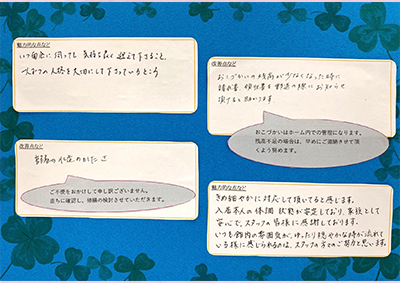 魅力的な点など
いつ面会に伺っても気持ち良く迎えて下さること。
人を大切にして下さっているところ
改善点など
部屋の水在のかたさ
ご不便をおかけして申し訳ございません。
直ちに確認し、修繕の検討させていただきます。
改善点など
おこづかいの残高が少なくなった時に
請求書、領収書を郵送の際にお知らせ
頂けると助かります。
おこづかいはホーム内での管理になります。
残高不足の場合は、早めにご連絡させて頂
くよう努めます。
魅力的な点など
きめ細やかに対応して頂いてると感じます。
入居本人の体調 状態が安定しており、家族として
安心で、スタッフの皆様に感謝しております。
いつも館内の雰囲気が、ゆったり穏やかな時が流れて
いる様に感じられるのは、スタッフの方々のご努力と思います。